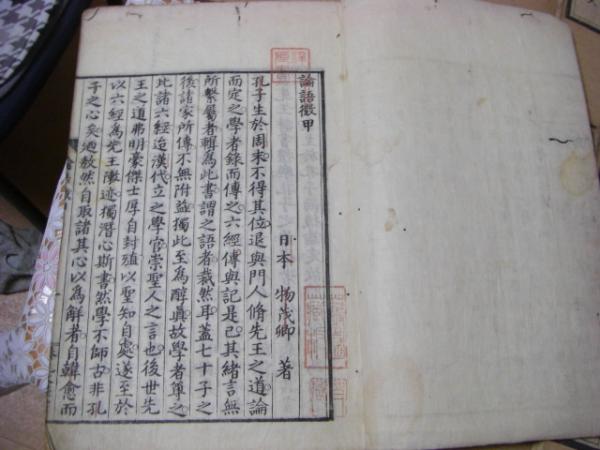 論語徵甲
日本 物茂卿 著
孔子生於周末不得其位退與門人脩先王之道論
而定之學者錄而傳之六經傳與記是已其緒言無
所繫屬者輯為此書謂之語者裁然耳蓋七十子之
後諸家所傳不無附益獨此至為醇真故學者尊之
比諸六經迨漢代立之學官崇聖人之言也後世先
王之道弗明豪傑士厚自封殖以聖知自處遂至於
以六經為先王陳迹獨潛心斯書然學不師古非孔
子之心矣迺敖然自取諸其心以為解者自韓愈而